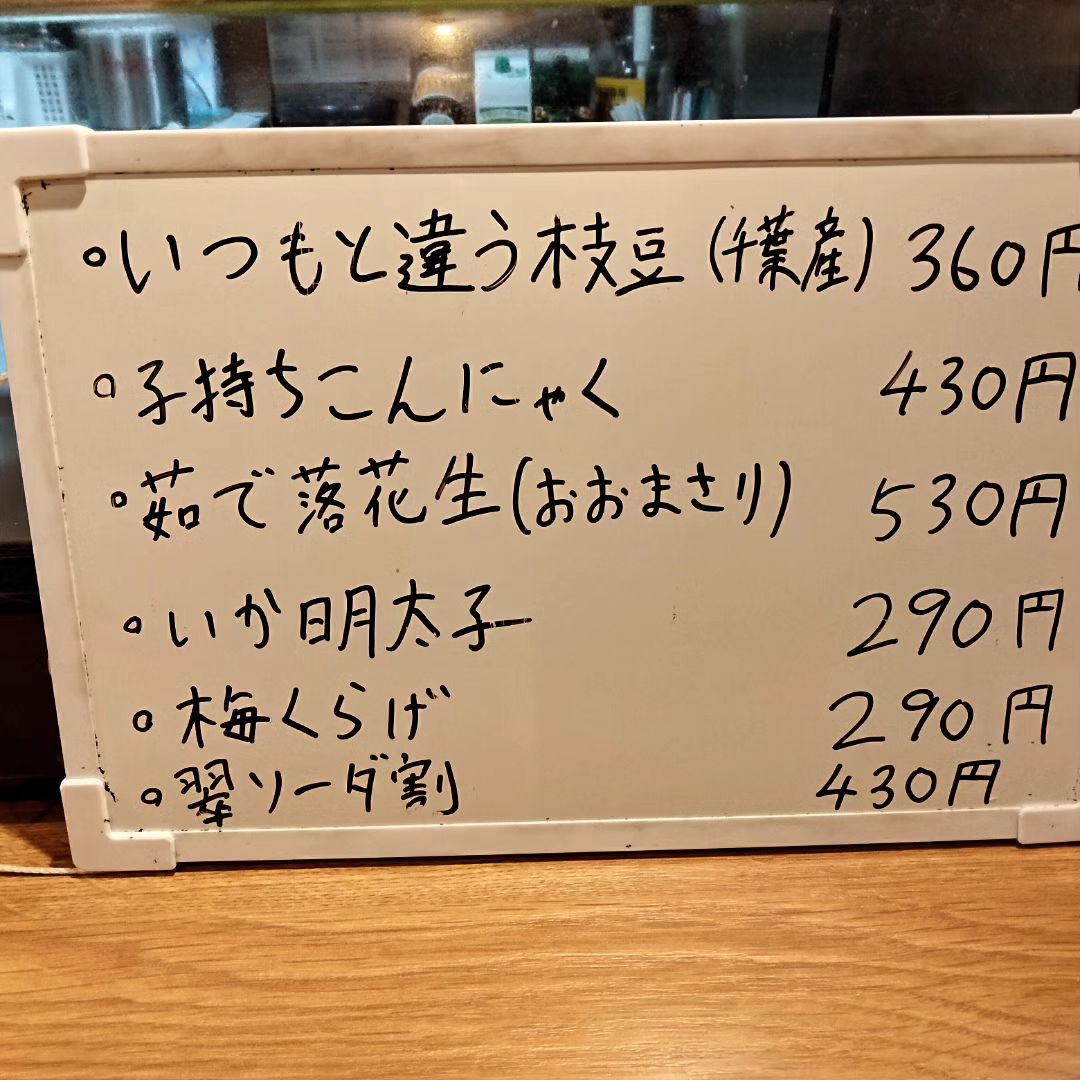 ・いつもと違う枝豆(千葉産) 360円
・子持ちこんにゃく 430円
・茹で落花生(おおまさり) 530円
・いか明太子 290円
・梅くらげ 290円
・翠ソーダ割 430円